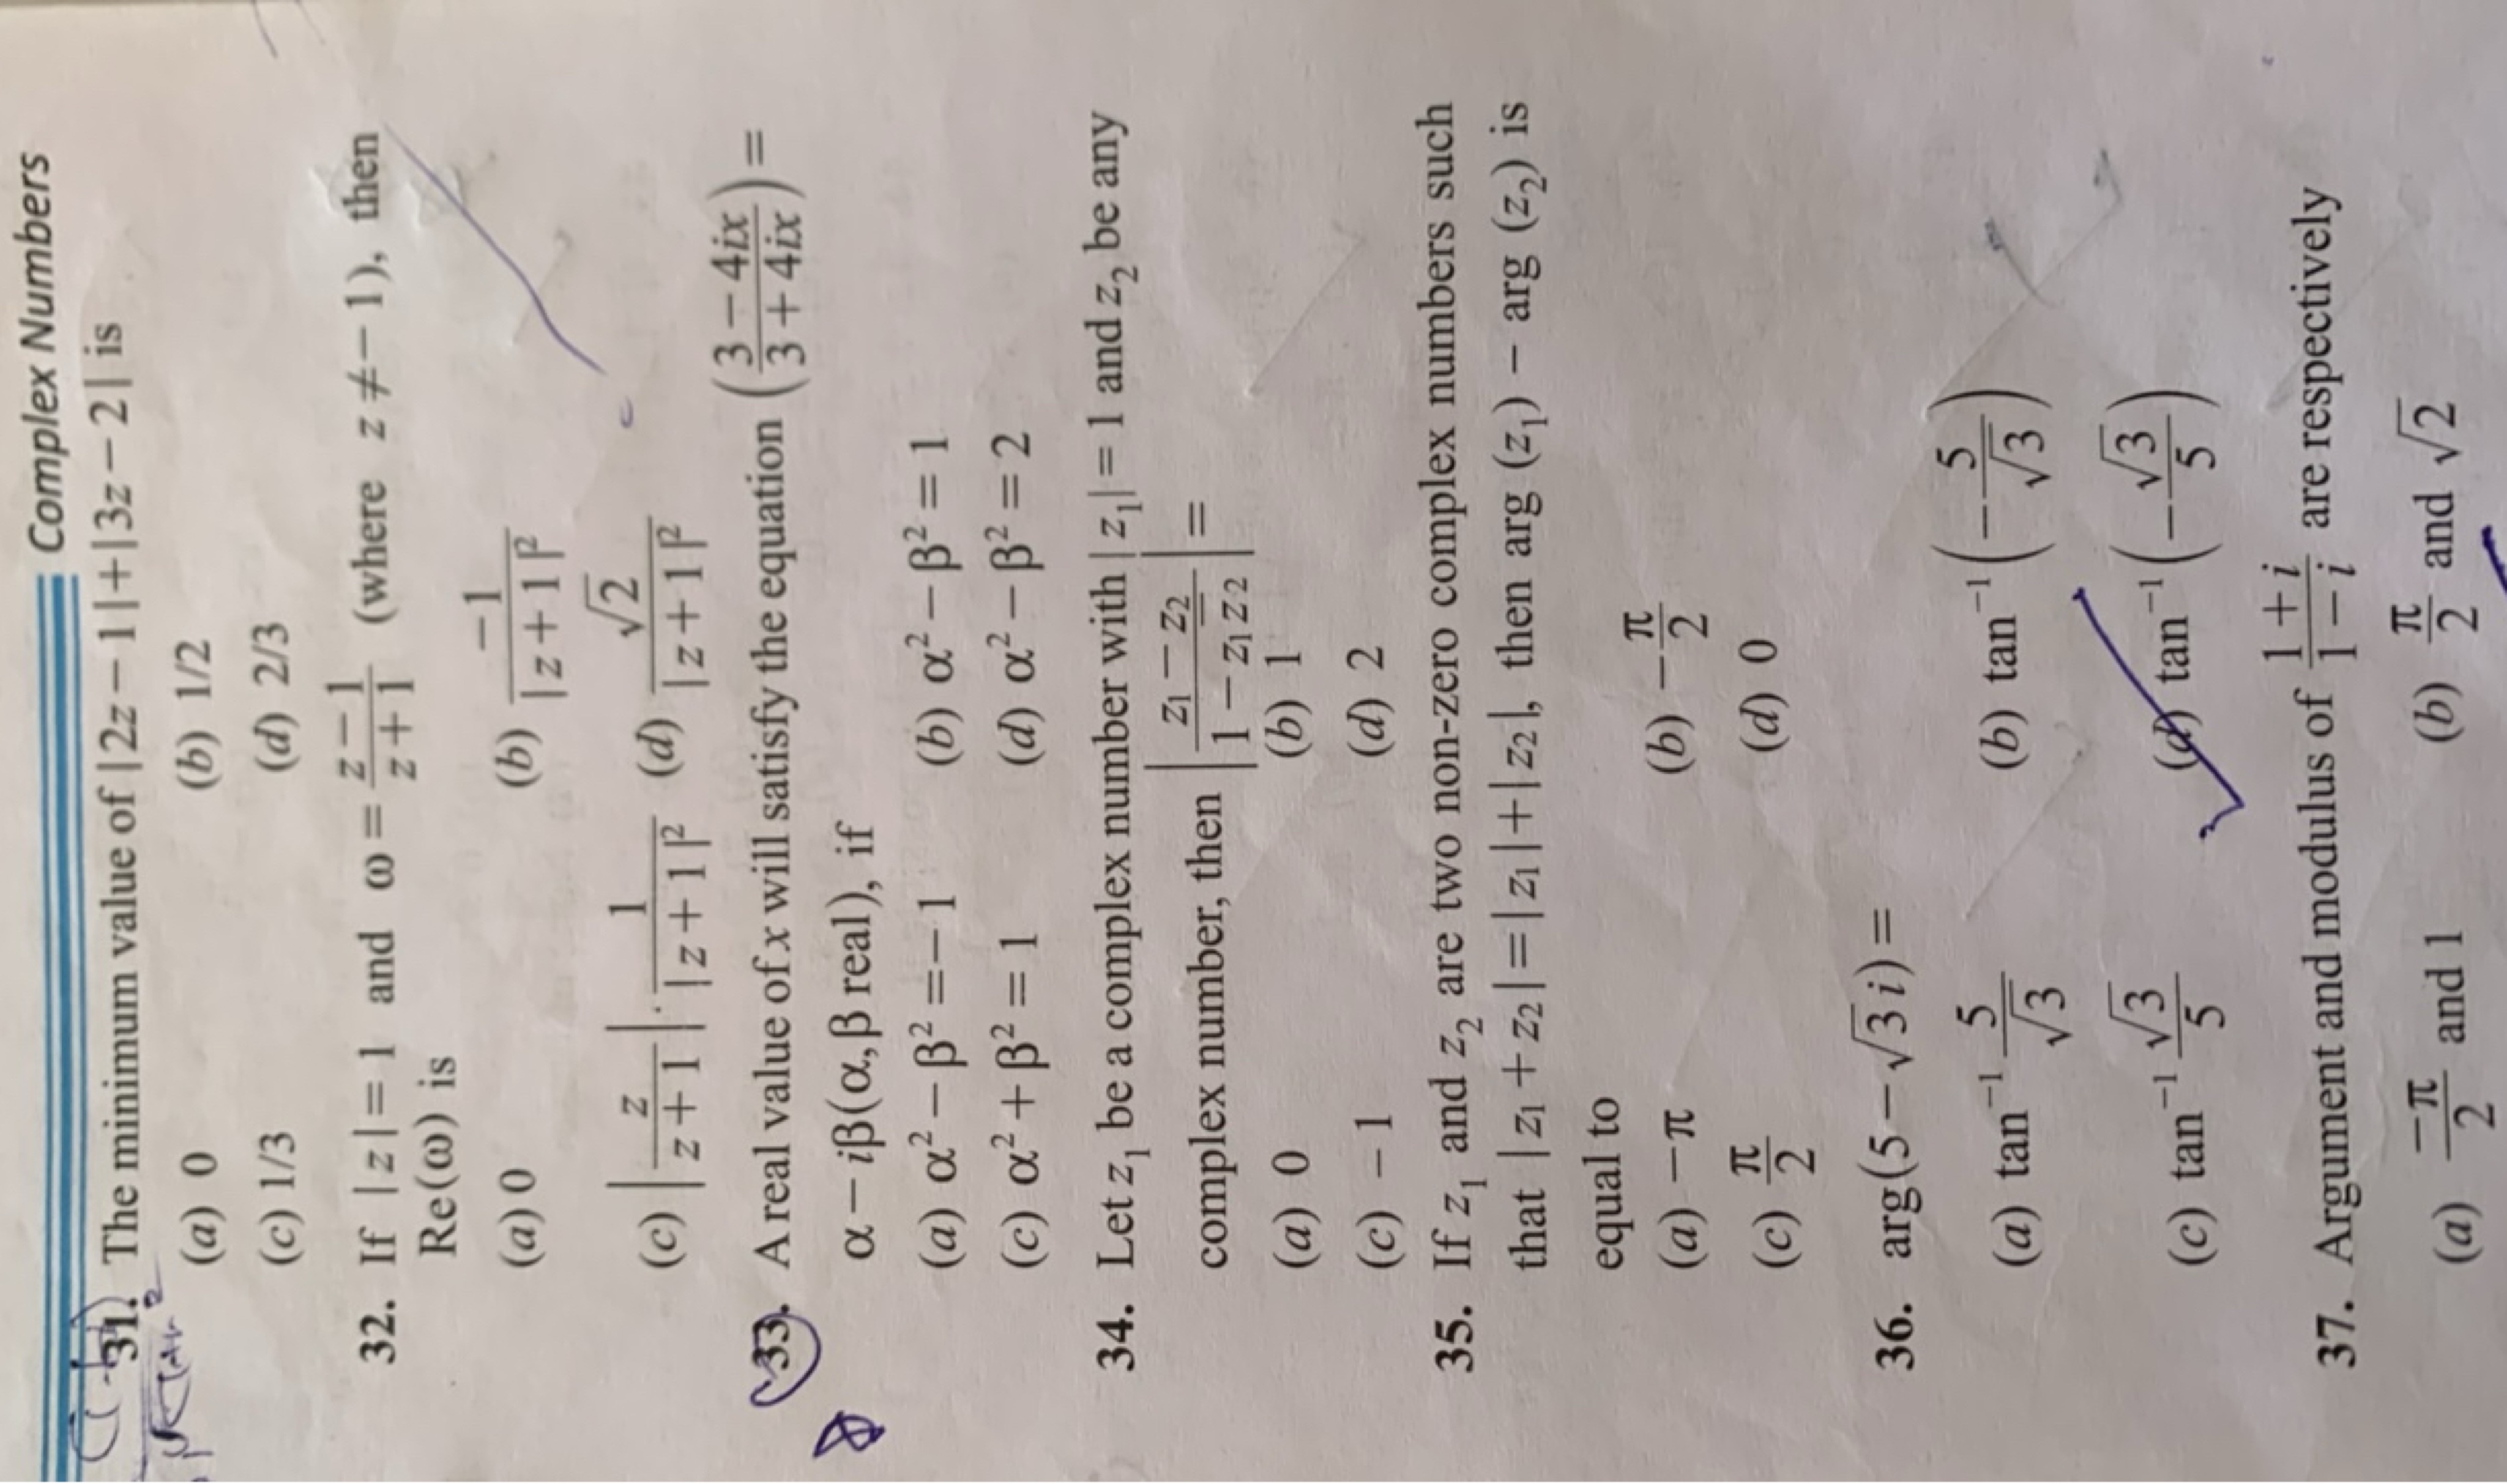 Complex Numbers
31. The minimum value of |2z − 1| + |3z − 2| is
(a) 0 (b) 1/2
(c) 1/3 (d) 2/3
32. If |z| = 1 and ω = \frac{z − 1}{z + 1} (where z ≠ − 1), then
Re(ω) is
(a) 0 (b) \frac{−1}{|z + 1|²}
(c) |\frac{z}{z + 1}| · \frac{1}{|z + 1|²} (d) \frac{√2}{|z + 1|²}
33. A real value of x will satisfy the equation (\frac{3 − 4ix}{3 + 4ix}) =
α − iβ(α, β real), if
(a) α² − β² = − 1 (b) α² − β² = 1
(c) α² + β² = 1 (d) α² − β² = 2
34. Let z₁ be a complex number with |z₁| = 1 and z₂ be any
complex number, then |\frac{z₁ − z₂}{1 − z₁ z̄₂}| =
(a) 0 (b) 1
(c) − 1 (d) 2
35. If z₁ and z₂ are two non-zero complex numbers such
that |z₁ + z₂| = |z₁| + |z₂|, then arg (z₁) − arg (z₂) is
equal to
(a) −π (b) −\frac{π}{2}
(c) \frac{π}{2} (d) 0
36. arg(5 − √3 i) =
(a) tan⁻¹ \frac{5}{√3} (b) tan⁻¹ (−\frac{5}{√3})
(c) tan⁻¹ \frac{√3}{5} (d) tan⁻¹ (−\frac{√3}{5})
37. Argument and modulus of \frac{1 + i}{1 − i} are respectively
(a) \frac{−π}{2} and 1 (b) \frac{π}{2} and √2